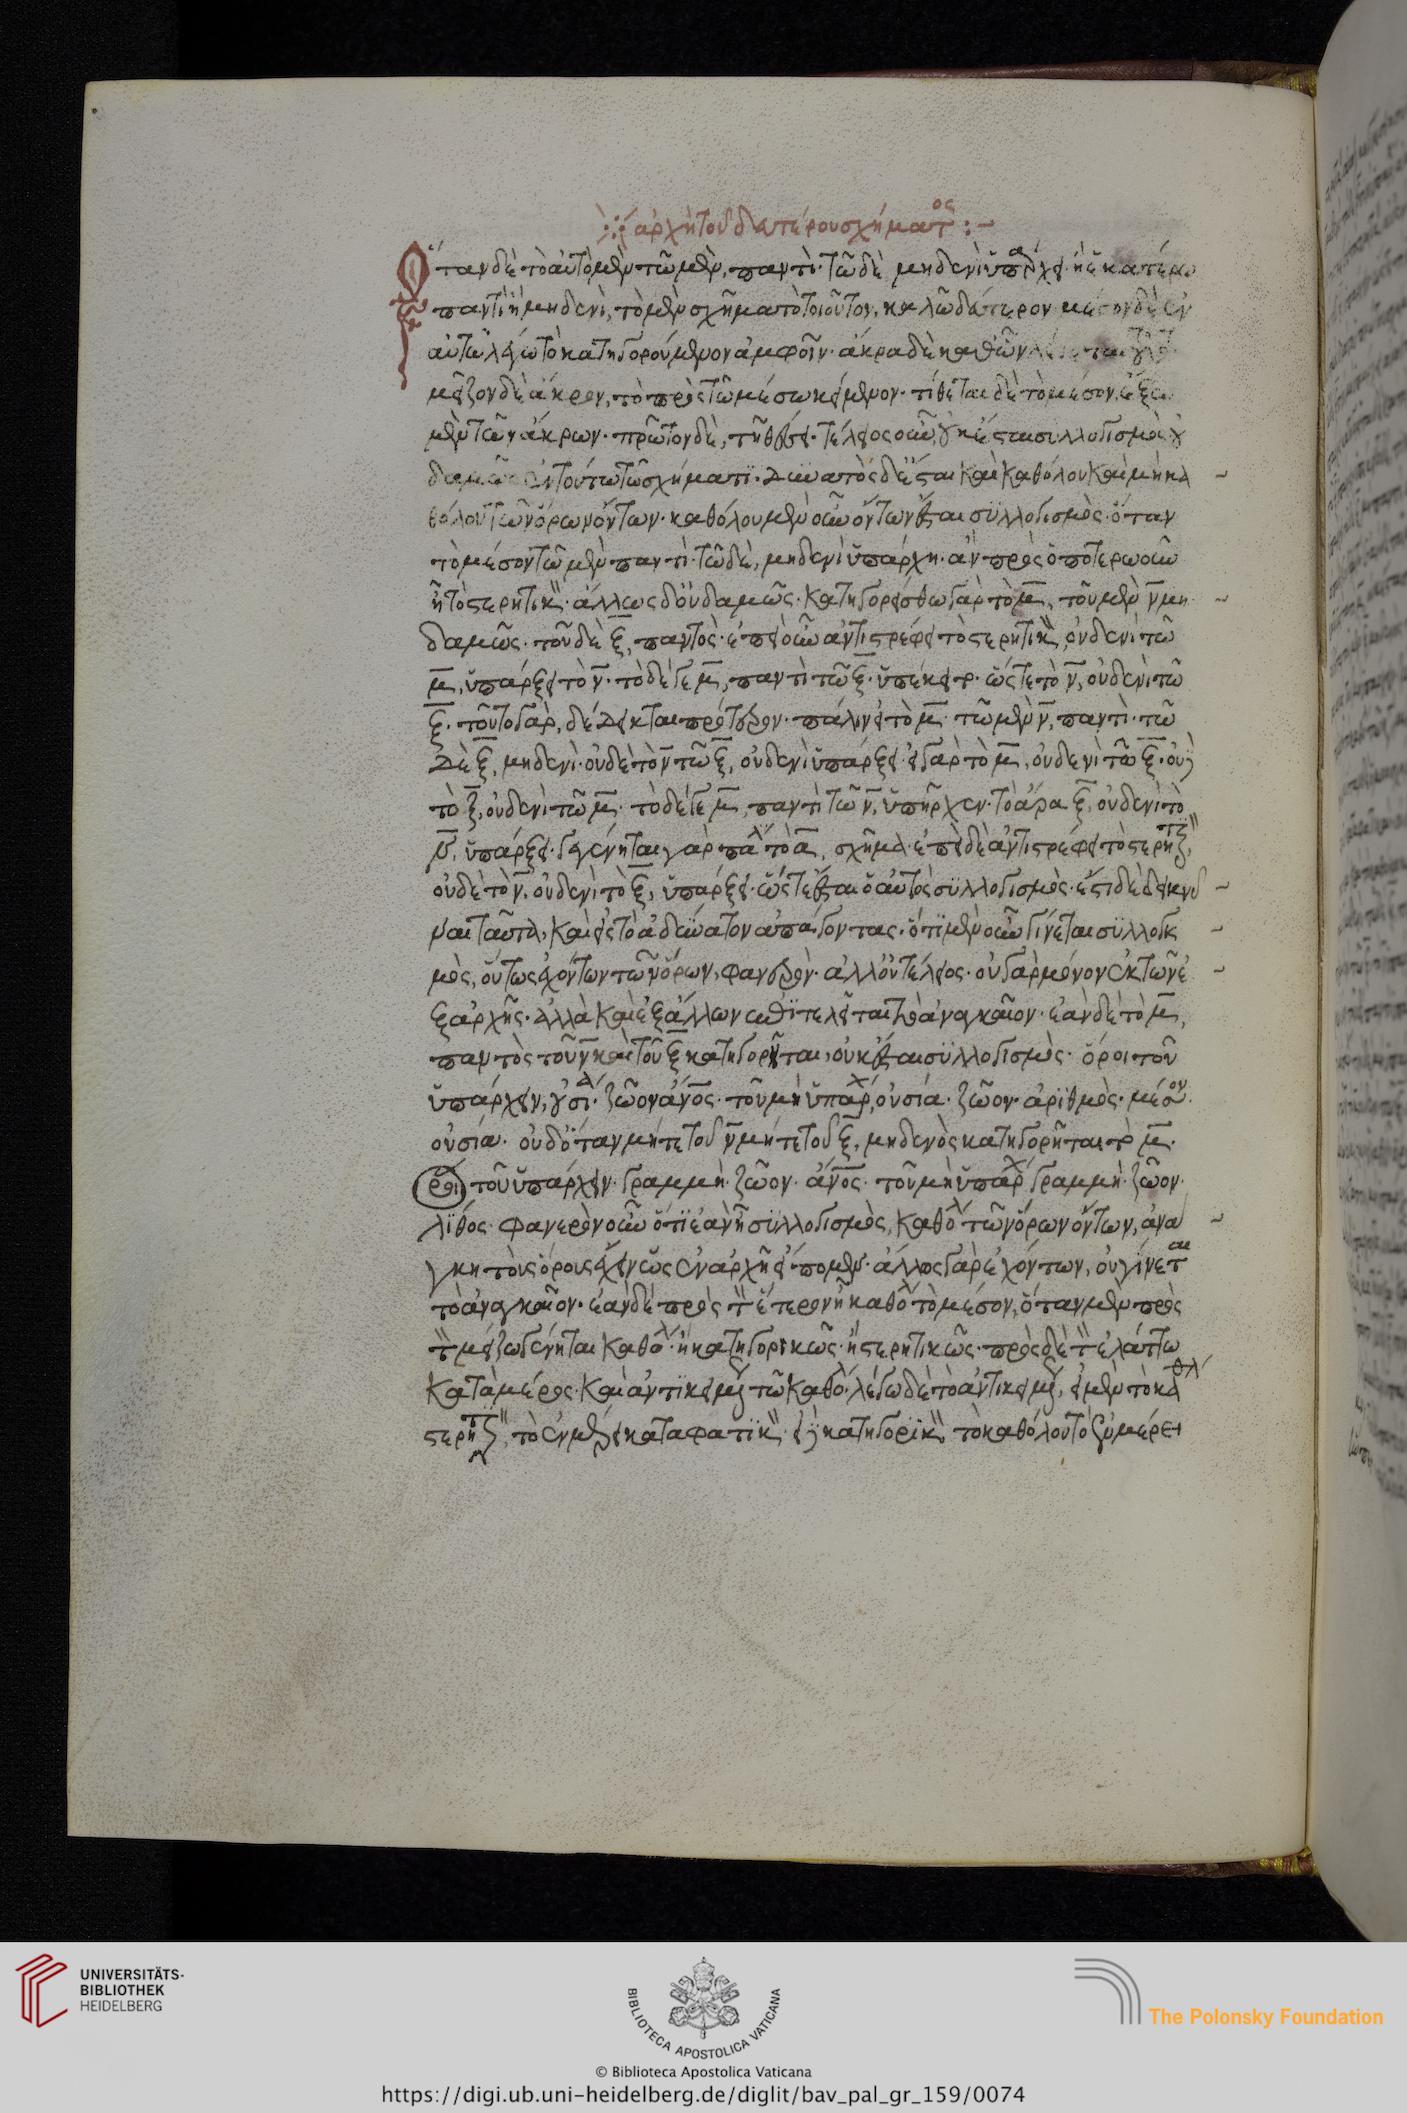 ἀρχὴ τοῦ δευτέρου σχήματος :~
Ὅταν δὲ τὸ αὐτὸ μὲν τῶ μὲν, παντὶ· τῶ δὲ μηδενὶ ὑπάρχει· ἢ ἑκατέρω
παντὶ ἢ μηδενὶ, τὸ μὲν σχῆμα τὸ τοιοῦτον, καλῶ δεύτερον μέσον δὲ ἐν
αὐτῶ λέγω τὸ κατηγορούμενον ἀμφοῖν· ἄκρα δὲ καθ ὧν
μεῖζον δὲ ἄκρον, τὸ πρὸς τῶ μέσω κείμενον· τίθεται δὲ τὸ μέσον, ἔξω
μὲν τῶν ἄκρων· πρῶτον δὲ, τῆ θέσει· τέλειος οὖν οὐκ ἔσται συλλογισμὸς οὐ
δαμῶς ἐν τούτω τῶ σχήματι· δυνατὸς δ' ἔσται καὶ καθόλου καὶ μὴ κα
θόλου τῶν ὅρων ὄντων· καθόλου μὲν οὖν ὄντων ἔσται συλλογισμὸς· ὅταν
τὸ μέσον τῶ μὲν παντὶ· τῶ δὲ, μηδενὶ ὑπάρχη· ἂν πρὸς ὁποτέρω οὖν
ἦ τὸ στερητικ· ἄλλως δ' οὐδαμῶς· κατηγορείσθω γὰρ τὸ μ, τοῦ μὲν ν μη
δαμῶς· τοῦ δὲ ξ, παντὸς· ἐπεὶ οὖν ἀντιστρέφει τὸ στερητικ, οὐδενὶ τῶ
μ, ὑπάρξει τὸ ν· τὸ δέ γε μ, παντὶ τῶ ξ· ὑπέκειτο· ὥστε τὸ ν, οὐδενὶ τῶ
ξ· τοῦτο γὰρ, δέδεικται πρότερον· πάλιν εἰ τὸ μ τῶ μὲν ν, παντὶ· τῶ
δὲ ξ, μηδενὶ· οὐδὲ τὸ ν τῶ ξ, οὐδενὶ ὑπάρξει· εἰ γὰρ τὸ μ, οὐδενὶ τῶ ξ· οὐδὲ
τὸ ξ, οὐδενὶ τῶ μ· τὸ δέ γε μ, παντὶ τῶ ν, ὑπῆρχεν· τὸ ἄρα ξ, οὐδενὶ τὸ
ν, ὑπάρξει· γεγένηται γὰρ πάλ τὸ α, σχῆμα· ἐπεὶ δὲ ἀντιστρέφει τὸ στερητικ,
οὐδὲ τὸ ν, οὐδενὶ τὸ ξ, ὑπάρξει· ὥστ' ἔσται ὁ αὐτὸς συλλογισμὸς· ἔστι δὲ δεικνύ
ναι ταῦτα, καὶ εἰς τὸ ἀδύνατον ἀπάγοντας· ὅτι μὲν οὖν γίνεται συλλογισ
μὸς, οὕτως ἐχόντων τῶν ὅρων, φανερὸν· ἀλλ' ὀν τέλειος· οὐ γὰρ μόνον ἐκ τῶν ἐ
ξαρχῆς· ἀλλὰ καὶ ἐξ ἄλλων ἐπιτελεῖται τὸ ἀναγκαῖον· ἐὰν δὲ τὸ μ,
παντὸς τοῦ ν καὶ τοῦ ξ κατηγορῆται, οὐκ ἔσται συλλογισμὸς· ὅροι τοῦ
ὑπάρχειν, οὐσία· ζῶον ἄνος· τοῦ μὴ ὑπάρχ, οὐσία· ζῶον· ἀριθμὸς· μέσον
οὐσία· οὐδ' ὅταν μήτε τοῦ ν μήτε τοῦ ξ, μηδενὸς κατηγορῆται τὸ μ·
ὅροι τοῦ ὑπάρχειν· γραμμὴ· ζῶον· ἄνος· τοῦ μὴ ὑπάρχ γραμμὴ· ζῶον·
λίθος· φανερὸν οὖν ὅτι ἐὰν ἦ συλλογισμὸς, καθόλ τῶν ὅρων ὄντων, ἀνα
γκη τοὺς ὅρους ἔχειν ὡς ἐν ἀρχῆ εἴπομεν· ἄλλως γὰρ ἐχόντων, οὐ γίνεται
τὸ ἀναγκαῖον· ἐὰν δὲ πρὸς τ ἕτερον ἦ καθόλ τὸ μέσον, ὅταν μὲν πρὸς
τ μείζω γένηται καθόλ· ἢ κατηγορικῶς· ἢ στερητικῶς· πρὸς δὲ τ ἐλάττω
κατὰ μέρος· καὶ ἀντικειμ τῶ καθόλ· λέγω δὲ τὸ ἀντικειμ, εἰ μὲν τὸ καθλ
στερητικ, τὸ ἐν μέρει καταφατικ· εἰ δὲ κατηγορικ τὸ καθόλου τὸ ἐν μέρει
UNIVERSITÄTS-
BIBLIOTHEK
HEIDELBERG
BIBLIOTECA APOSTOLICA VATICANA
The Polonsky Foundation
© Biblioteca Apostolica Vaticana
https://digi.ub.uni-heidelberg.de/diglit/bav_pal_gr_159/0074